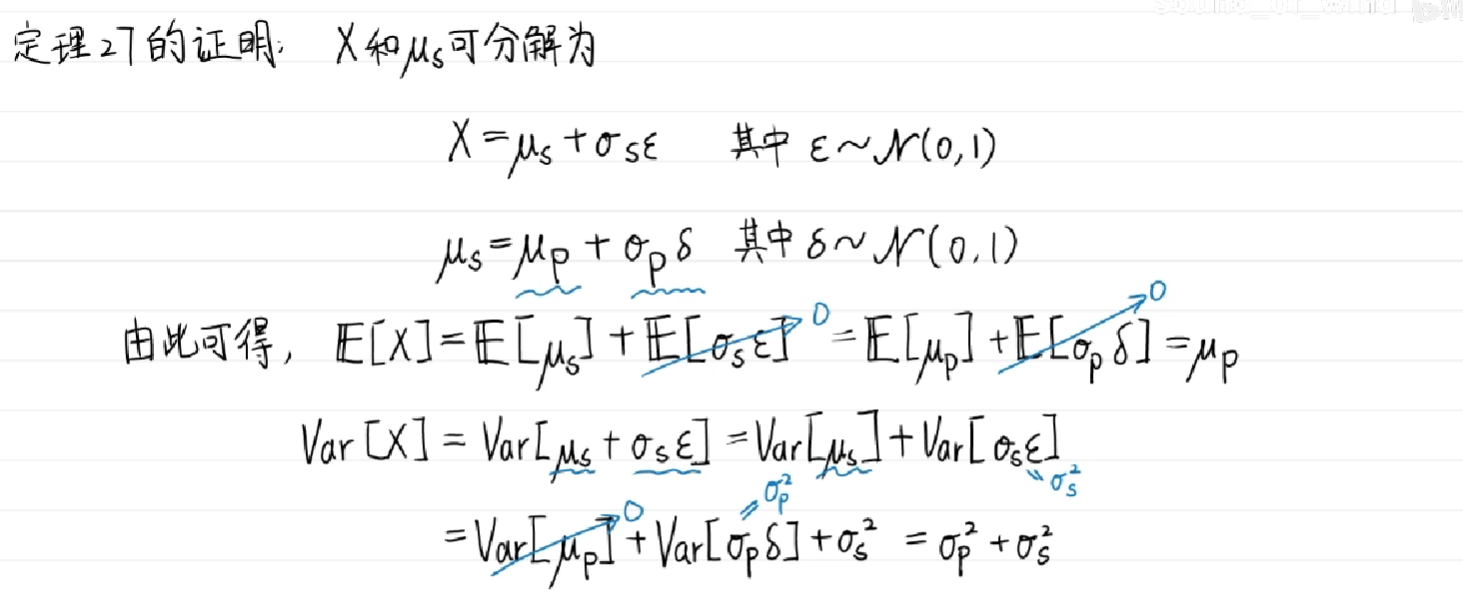 定理27的证明: X和μₛ可分解为
X = μₛ + σₛε 其中 ε ~ 𝒩(0,1)
μₛ = μₚ + σₚδ 其中 δ ~ 𝒩(0,1)
由此可得, 𝔼[X] = 𝔼[μₛ] + 𝔼[σₛε]→0 = 𝔼[μₚ] + 𝔼[σₚδ]→0 = μₚ
Var[X] = Var[μₛ + σₛε] = Var[μₛ] + Var[σₛε]
σₚ² σₛ²
= Var[μₚ]→0 + Var[σₚδ] + σₛ² = σₚ² + σₛ²